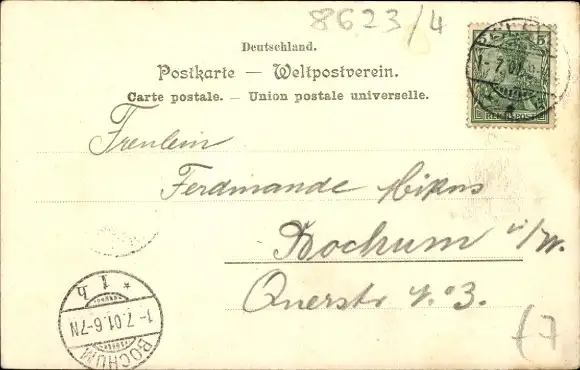 8623/4
Deutschland.
Postkarte — Weltpostverein.
Carte postale. – Union postale universelle.
5
1-7.01
REICHSPOST
Freulein
Ferdinande
Bochum i/W.
Querstr
3.
* 1 h
1-7.01.6-7N
BOCHUM
7